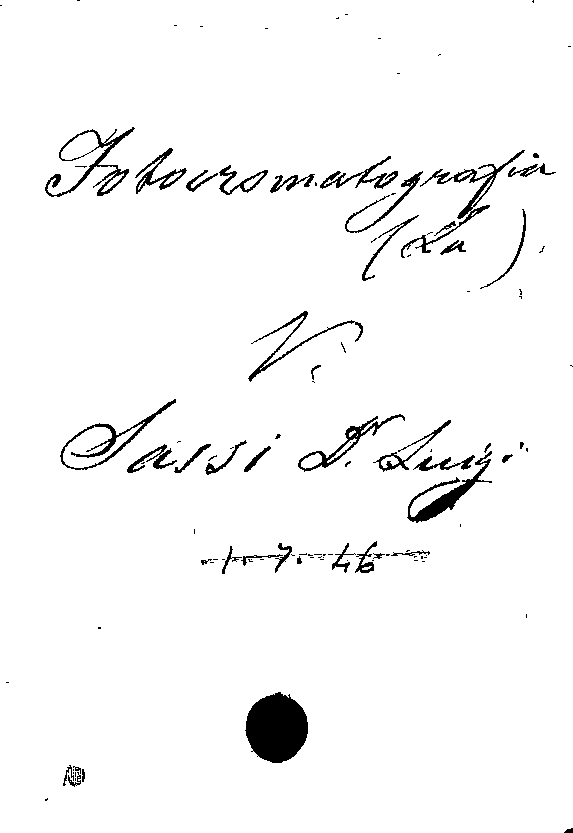 Fotocromatografia
(La).
V.
Sassi Dr. Luigi
1. 7. 46